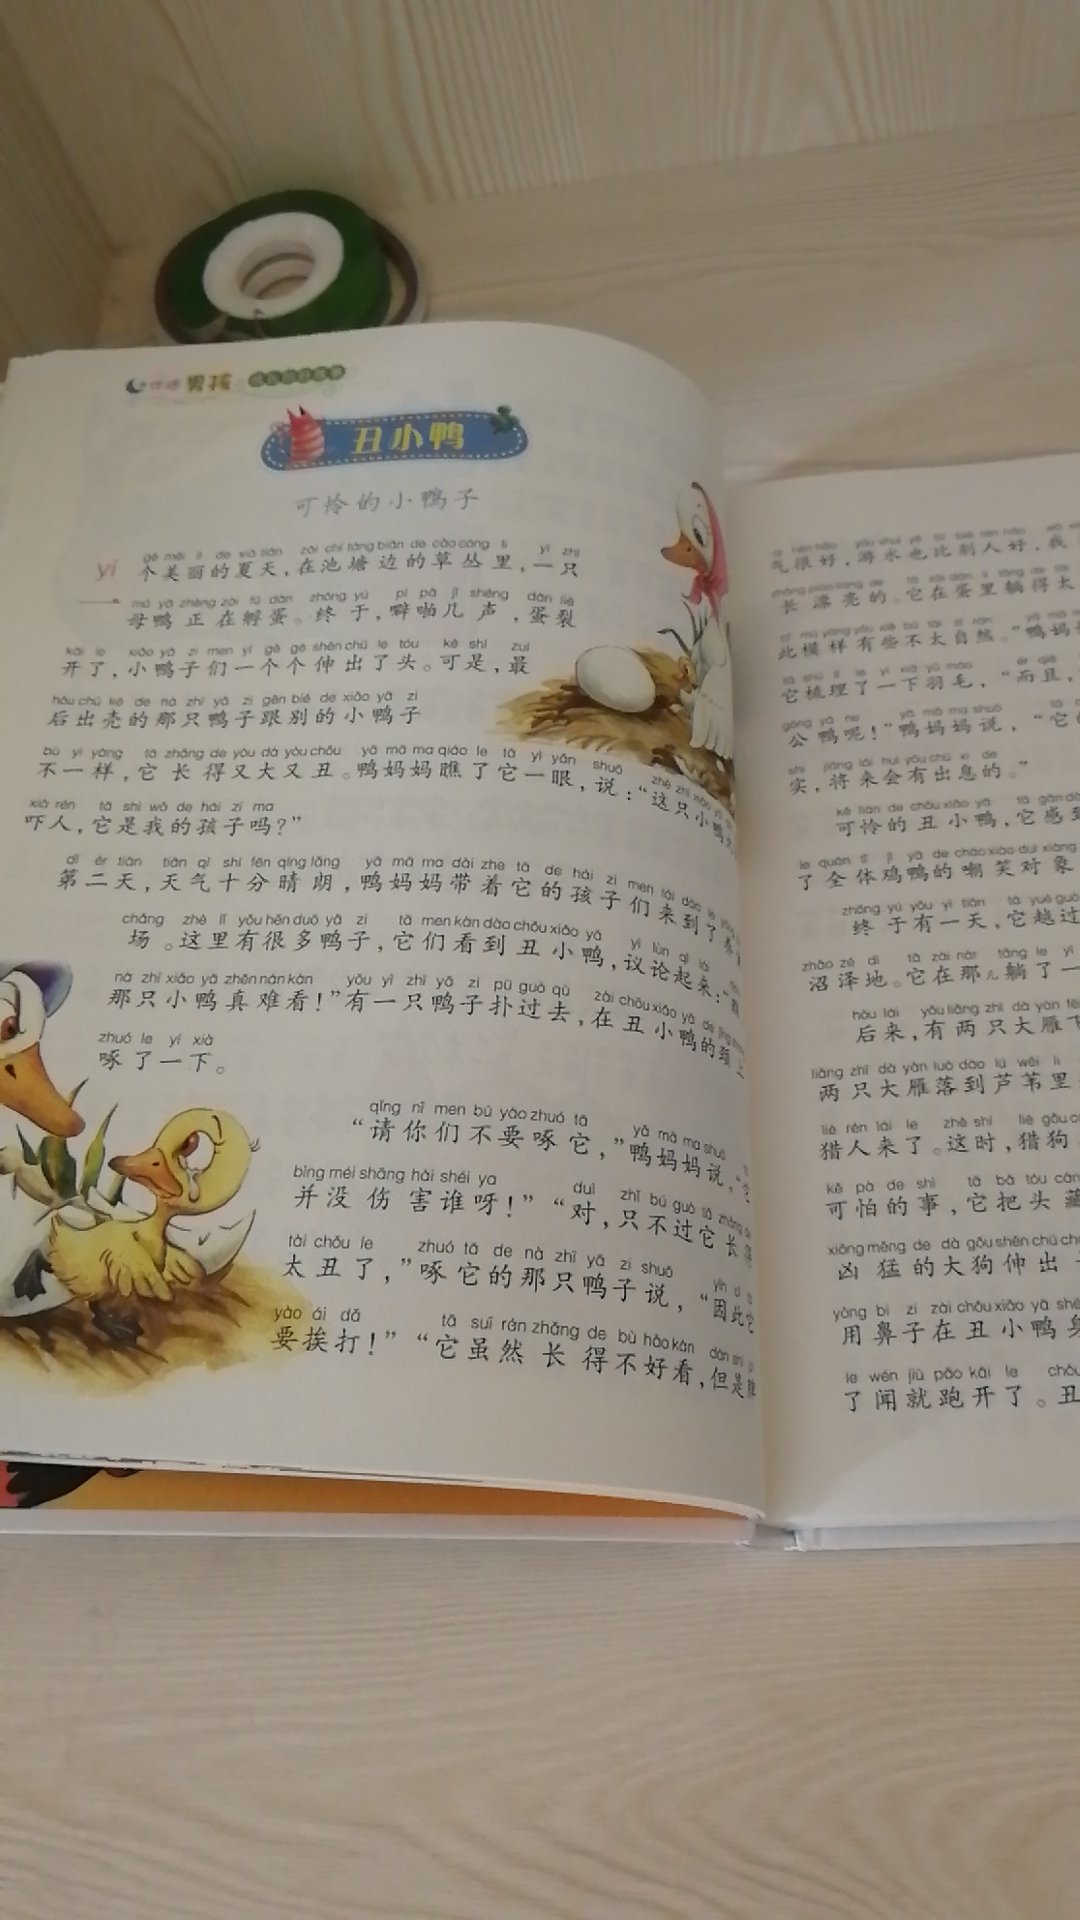 男孩
丑小鸭
可怜的小鸭子
yí gè měi lì de xià tiān zài chí táng biān de cǎo cóng lǐ yì zhī
一个美丽的夏天，在池塘边的草丛里，一只
mǔ yā zhèng zài fū dàn zhōng yú pī pā jǐ shēng dàn liè
母鸭正在孵蛋。终于，噼啪几声，蛋裂
kāi le xiǎo yā zi men yí gè gè shēn chū le tóu kě shì zuì
开了，小鸭子们一个个伸出了头。可是，最
hòu chū ké de nà zhī yā zi gēn bié de xiǎo yā zi
后出壳的那只鸭子跟别的小鸭子
bù yí yàng tā zhǎng de yòu dà yòu chǒu yā mā ma qiáo le tā yì yǎn shuō zhè zhī xiǎo yā
不一样，它长得又大又丑。鸭妈妈瞧了它一眼，说：“这只小鸭
xià rén tā shì wǒ de hái zi ma
吓人，它是我的孩子吗？”
dì èr tiān tiān qì shí fēn qíng lǎng yā mā ma dài zhe tā de hái zi men lái dào le
第二天，天气十分晴朗，鸭妈妈带着它的孩子们来到了
chǎng zhè lǐ yǒu hěn duō yā zi tā men kàn dào chǒu xiǎo yā yì lùn qǐ lái
场。这里有很多鸭子，它们看到丑小鸭，议论起来：“
nà zhī xiǎo yā zhēn nán kàn yǒu yì zhī yā zi pū guò qù zài chǒu xiǎo yā de jǐng
那只小鸭真难看！”有一只鸭子扑过去，在丑小鸭的颈上
zhuó le yí xià
啄了一下。
qǐng nǐ men bú yào zhuó tā yā mā ma shuō
“请你们不要啄它，”鸭妈妈说，“它
bìng méi shāng hài shéi ya duì zhǐ bú guò tā zhǎng de
并没伤害谁呀！”“对，只不过它长得
tài chǒu le zhuó tā de nà zhī yā zi shuō yīn cǐ tā
太丑了，”啄它的那只鸭子说，“因此它
yào ái dǎ tā suī rán zhǎng de bù hǎo kàn dàn shì
要挨打！”“它虽然长得不好看，但是
气很好，游水也比别人好，我
长漂亮的。它在蛋里躺得太
此模样有些不太自然。”鸭妈
tā shū lǐ le yí xià yǔ máo ér qiě
它梳理了一下羽毛，“而且，
gōng yā ne yā mā ma shuō
公鸭呢！”鸭妈妈说，“它
shí jiāng lái huì yǒu chū xi de
实，将来会有出息的。”
kě lián de chǒu xiǎo yā tā gǎn dào
可怜的丑小鸭，它感到
le quán tǐ jī yā de cháo xiào duì xiàng
了全体鸡鸭的嘲笑对象
zhōng yú yǒu yì tiān tā yuè guò
终于有一天，它越过
zhǎo zé dì tā zài nàr tǎng le yí
沼泽地。它在那儿躺了一
hòu lái yǒu liǎng zhī dà yàn fēi
后来，有两只大雁飞
liǎng zhī dà yàn luò dào lú wěi lǐ
两只大雁落到芦苇里
liè rén lái le zhè shí liè gǒu
猎人来了。这时，猎狗
kě pà de shì tā bǎ tóu cáng
可怕的事，它把头藏
xiōng měng de dà gǒu shēn chū
凶猛的大狗伸出
yòng bí zi zài chǒu xiǎo yā shēn
用鼻子在丑小鸭身
le wén jiù pǎo kāi le chǒu
了闻就跑开了。丑